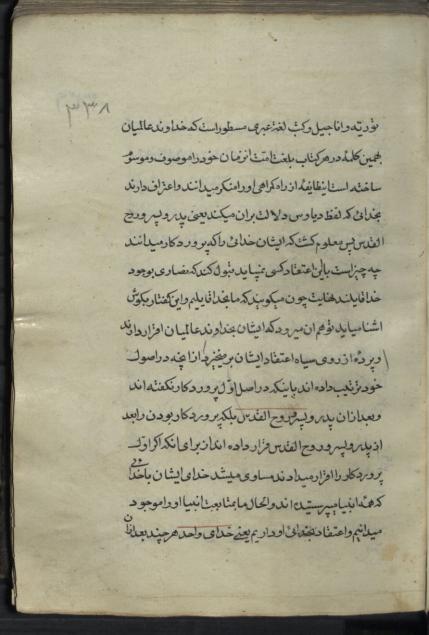 ۳۳۸
توریته و اناجیل و کتب لغة عبری مسطور است که خداوند عالمیان
بهمین کلمه در هر کتاب بلغت امت آنزمان خود را موصوف و موسوم
ساخته است این طایفهٔ از راه کراهی او را منکر میدانند و اعتراف دارند
بخدائی که لفظ دیاوس دلالت بران میکند یعنی پدر و پسر و روح
القدس پس معلوم کشت که ایشان خدائی را که پروردکار میدانند
چه چیز است باآن اعتقاد کسی نمیباید قبول کند که نصاری بوجود
خدا قایلند نهایت چون میکویند که ما بخدا قایلیم و این کفتار بکوش
اشنا میاید توهم ان میرود که ایشان بخداوند عالمیان اقرار دارند
و پرده از روی سیاه اعتقاد ایشان بر میخیزد از انچه در اصول
خود ترتیب داده اند باینکه در اصل اول پروردکار نکفته اند
و بعد ازان پدر و پسر و روح القدس بلکه پروردکار بودن را بعد
از پدر و پسر و روح القدس قرار داده اند از برای انکه اکر اول
پروردکار را اقرار میدادند مساوی میشد خدای ایشان با خدائی
که همه انبیا میپرستیده اند و الحال ما بمتابعت انبیا او را موجود
میدانیم و اعتقاد بخدائی او داریم یعنی خدای واحد هر چند بعد ازان